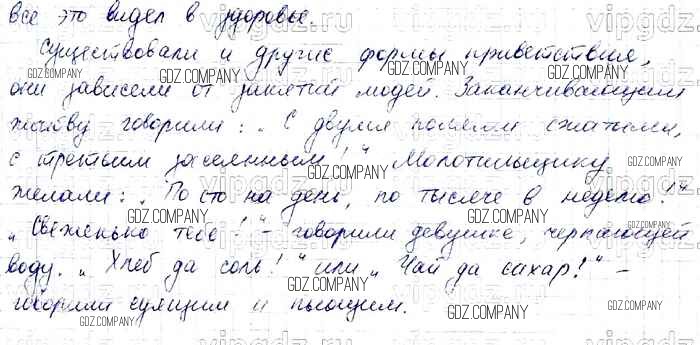 все это видел в здоровье.
Существовали и другие формы приветствия,
они зависели от занятий людей. Заканчивающим
жатву говорили: „С двумя полями сжатыми,
с третьим засеянным!“ Молотильщику
желали: „По сто на день, по тысяче в неделю!“
„Свеженько тебе!“ – говорили девушке, черпающей
воду. „Хлеб да соль!“ или „Чай да сахар!“ –
говорили едящим и пьющим.